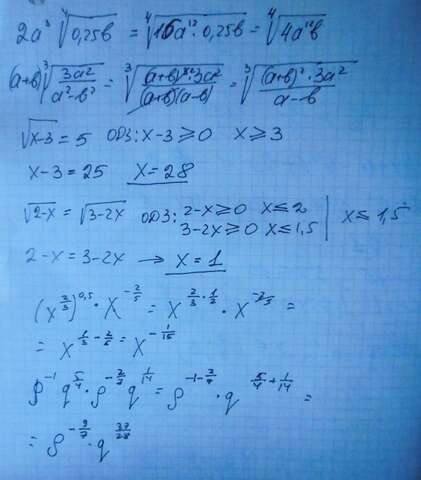 2a³ ⁴√0,25b = ⁴√16a¹² · 0,25b = ⁴√4a¹²b
(a+b) ³√(3a²/(a²-b²)) = ³√((a+b)³ · 3a²/((a+b)(a-b))) = ³√((a+b)² · 3a²/(a-b))
√x-3 = 5 ОДЗ: x-3 ≥ 0 x ≥ 3
x-3 = 25 x = 28
√2-x = √3-2x ОДЗ: 2-x ≥ 0 x ≤ 2 | x ≤ 1,5
3-2x ≥ 0 x ≤ 1,5
2-x = 3-2x → x = 1
(x^(2/3))^0,5 · x^(-2/5) = x^(2/3 · 1/2) · x^(-2/5) =
= x^(1/3 - 2/5) = x^(-1/15)
p^(-1) q^(5/4) · p^(-2/7) q^(1/14) = p^(-1-2/7) · q^(5/4 + 1/14) =
= p^(-9/7) · q^(37/28)